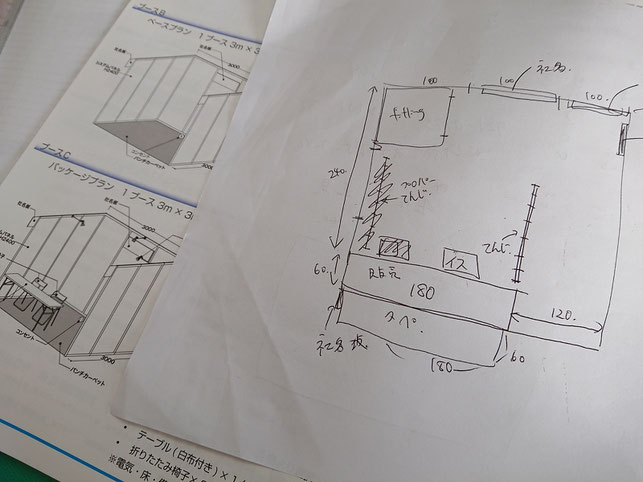 ブースB
ベースプラン 1ブース3m×3
社名板
社名板
3000
システムパネル
H2400
コンセント
パンチカーペット
ブースC
パッケージプラン 1ブース3m×3
社名板
社名板
3000
H2400
コンセント
パンチカーペット
・テーブル(白布付き)×1
・折りたたみ椅子×
※電気・床・
100
100
社名
100
fitting
240
てんじ
てんじ
イス
60
販売
180
120
社名板
180
60